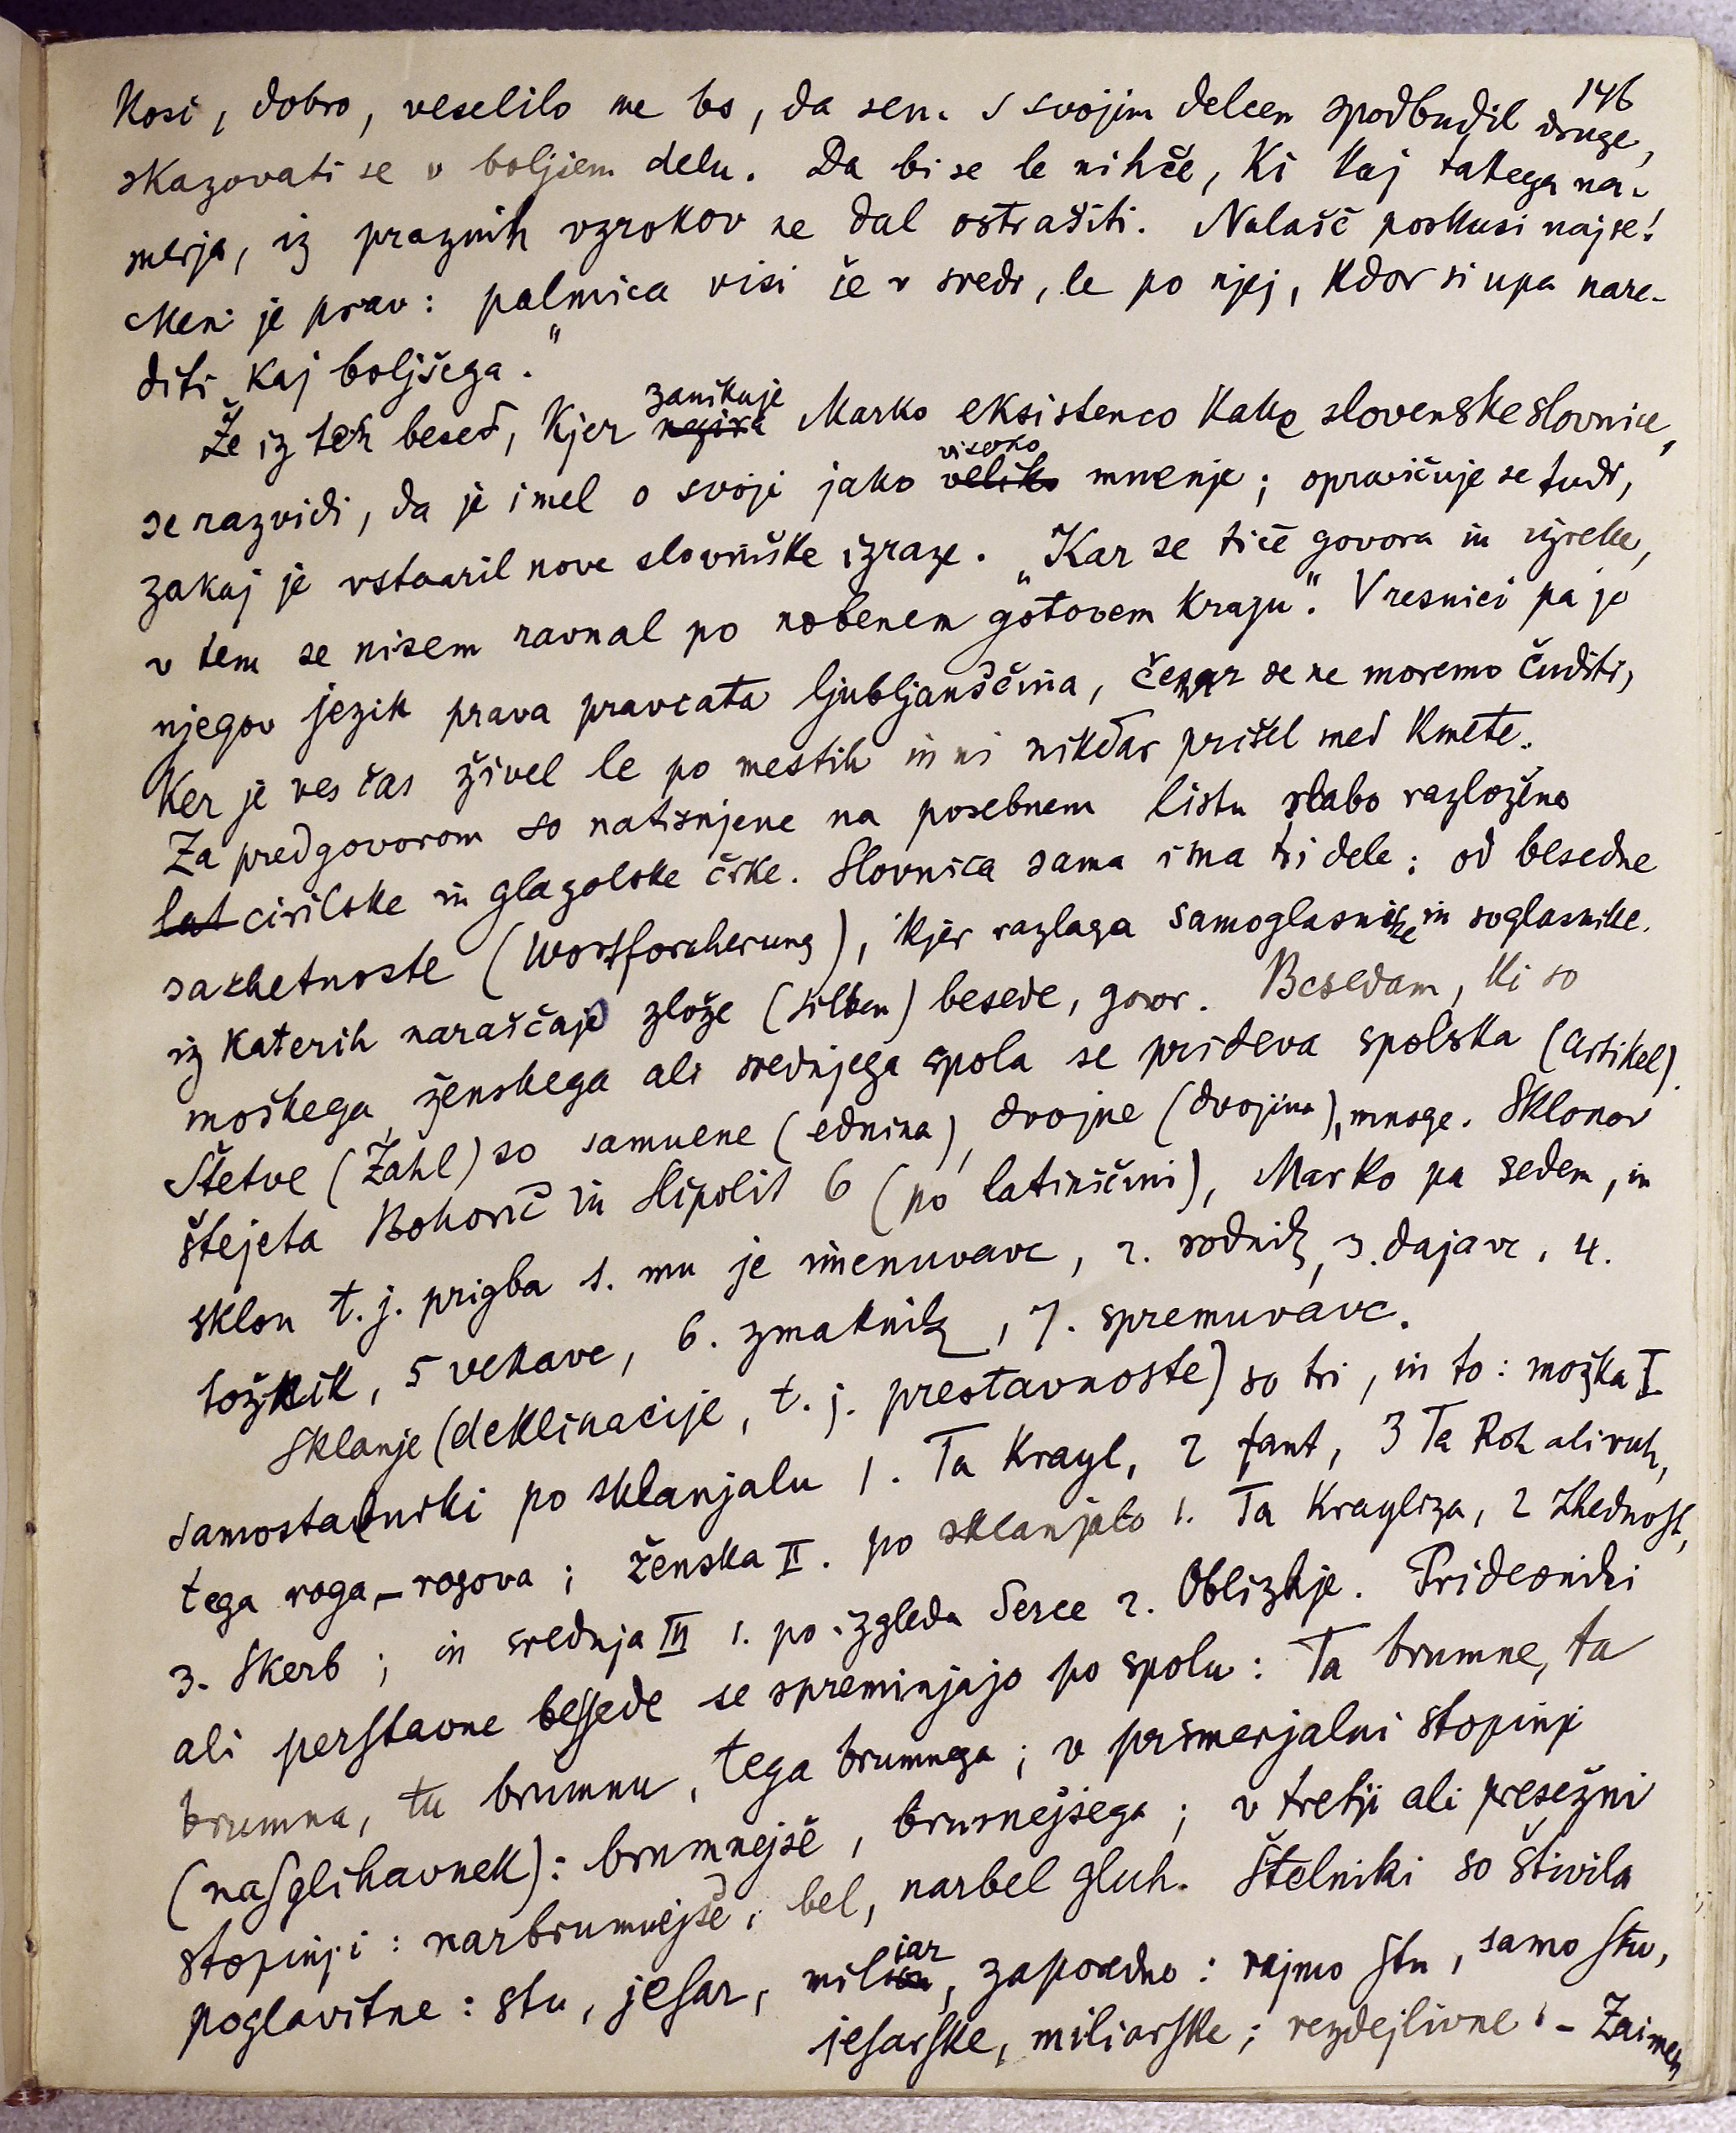 146
Kosi, dobro, veselilo me bo, da sem s svojim delcem spodbudil druge,
skazovati se v boljšem delu. Da bi se le nihče, ki kaj takega na-
merja, iz praznih vzrokov ne dal ostrašiti. Nalašč poskusi naj se!
Meni je prav: palmica visi še v sredi, le po njej, kdor si upa nare-
diti kaj boljšega."
Že iz teh besed, kjer zanikuje Marko eksistenco kake slovenske slovnice,
se razvidi, da je imel o svoji jako visoko veliko mnenje; opravičuje se tudi,
zakaj je vstvaril nove slovniške izraze. „Kar se tiče govora in izreke,
v tem se nisem ravnal po nobenem gotovem kraju". V resnici pa je
njegov jezik prava pravcata ljubljanščina, čemur se ne moremo čuditi,
ker je ves čas živel le po mestih in ni nikdar prišel med kmete.
Za predgovorom so natisnjene na posebnem listu slabo razložene
lat cirilske in glagolske črke. Slovnica sama ima tri dele: od besedne
sazhetnoste (Wortforscherung), kjer razlaga samoglasnike in soglasnike.
iz katerih naraščajo zlože (silben) besede, govor. Besedam, ki so
moškega, ženskega ali srednjega spola se prideva spolska (Artikel).
Štetve (Zahl) so samuene (ednina), dvojne (dvojina), mnoge. Sklonov
štejeta Bohorič in Hipolit 6 (po latinščini), Marko pa sedem, in
sklon t. j. prigba 1. mu je imenuvavc, 2. rodnik, 3. dajavc, 4.
tožnik, 5 vekavc, 6. zmaknik, 7. spremuvavc.
Sklanje (deklinacije, t. j. prestavnoste) so tri, in to: možka I
samostavniki po sklanjalu 1. Ta Krayl, 2 fant, 3 Ta Roh ali ruh,
tega roga – rogova; ženska II. po sklanjalo 1. Ta Krayliza, 2 zhednost,
3. Skerb; in srednja III 1. po izgledu Serce 2. Oblizhje. Pridevniki
ali perſtavne beſſede se spreminjajo po spolu: Ta brumne, ta
brumna, tu brumnu, tega brumnega; v primerjalni stopinji
(naſglihavnek): brumnejše, brumnejšega; v tretji ali presežni
stopinji: narbrumnejše, bel, narbel gluh. Štelniki so štivila
poglavitne: stu, jeſar, miliar, zaporedno: rajmo ſtu, samo ſtu,
jeſarſke, miliarſke; rezdejlivne. – Zaimen